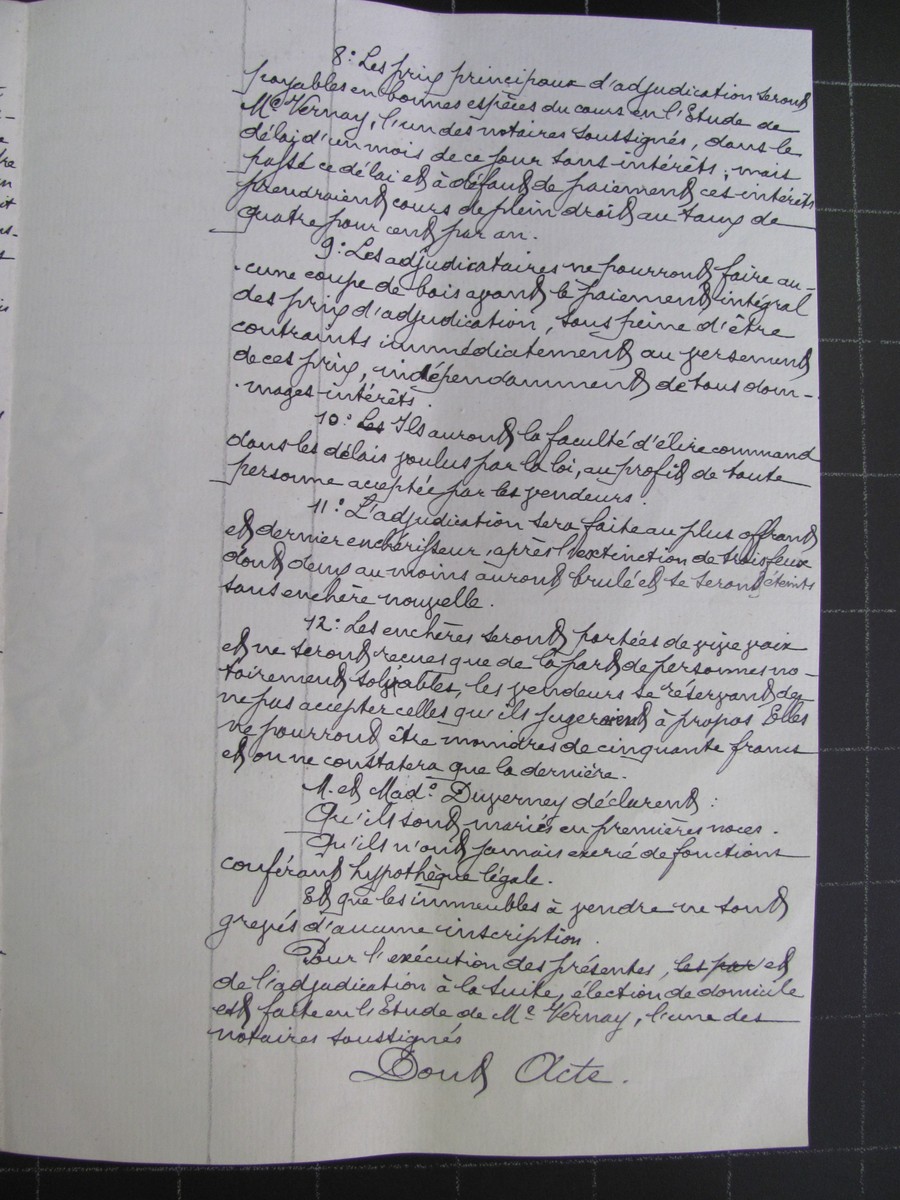 8° Les prix principaux d'adjudication seront
payables en bonnes espèces du cours en l'Etude de
Me Vernay, l'un des notaires soussignés, dans le
délai d'un mois de ce jour sans intérêts ; mais
passé ce délai et à défaut de paiement ces intérêts
prendraient cours de plein droit au taux de
quatre pour cent par an.
9° Les adjudicataires ne pourront faire au-
-cune coupe de bois avant le paiement intégral
des prix d'adjudication, sous peine d'être
contraints immédiatement au versement
de ces prix, indépendamment de tous dom-
-mages-intérêts.
10° Les Ils auront la faculté d'élire command
dans les délais voulus par la loi, au profit de toute
personne acceptée par les vendeurs.
11° L'adjudication sera faite au plus offrant
et dernier enchérisseur, après l'extinction de trois feux
dont deux au moins auront brulé et se seront éteints
sans enchère nouvelle.
12° Les enchères seront portées de vive voix
et ne seront reçues que de la part de personnes no-
tairement solvables, les vendeurs se réservant de
ne pas accepter celles qu'ils jugeraient à propos Elles
ne pourront être moindres de cinquante francs
et on ne constatera que la dernière.
M. et Made Duverney déclarent :
Qu'ils sont mariés en premières noces.
Qu'ils n'ont jamais exercé de fonctions
conférant hypothèque légale.
Et que les immeubles à vendre ne sont
grevés d'aucune inscription.
Pour l'exécution des présentes, les par et
de l'adjudication à la suite, élection de domicile
est faite en l'Etude de Me Vernay, l'une des
notaires soussignés
Dont Acte.